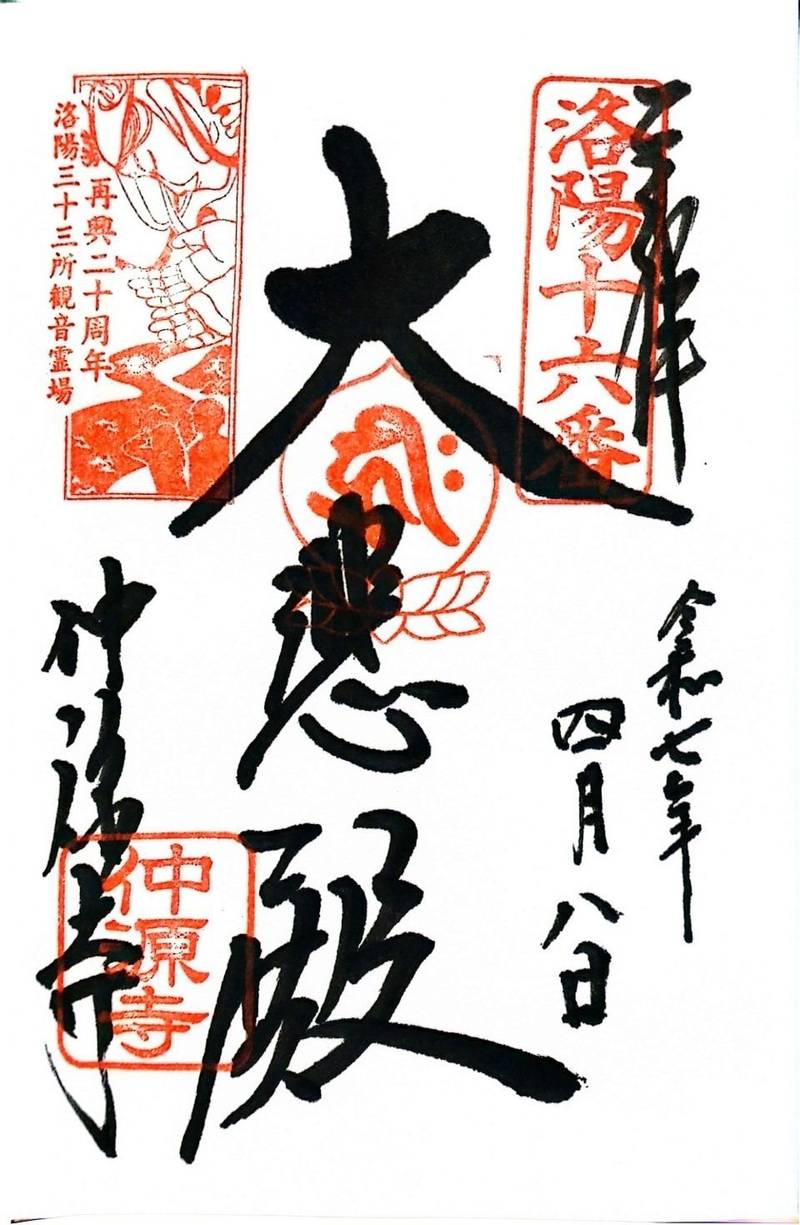 奉拝
洛陽十六番
令和七年
四月八日
大悲殿
再興二十周年
洛陽三十三所観音霊場
仲源寺
仲源寺